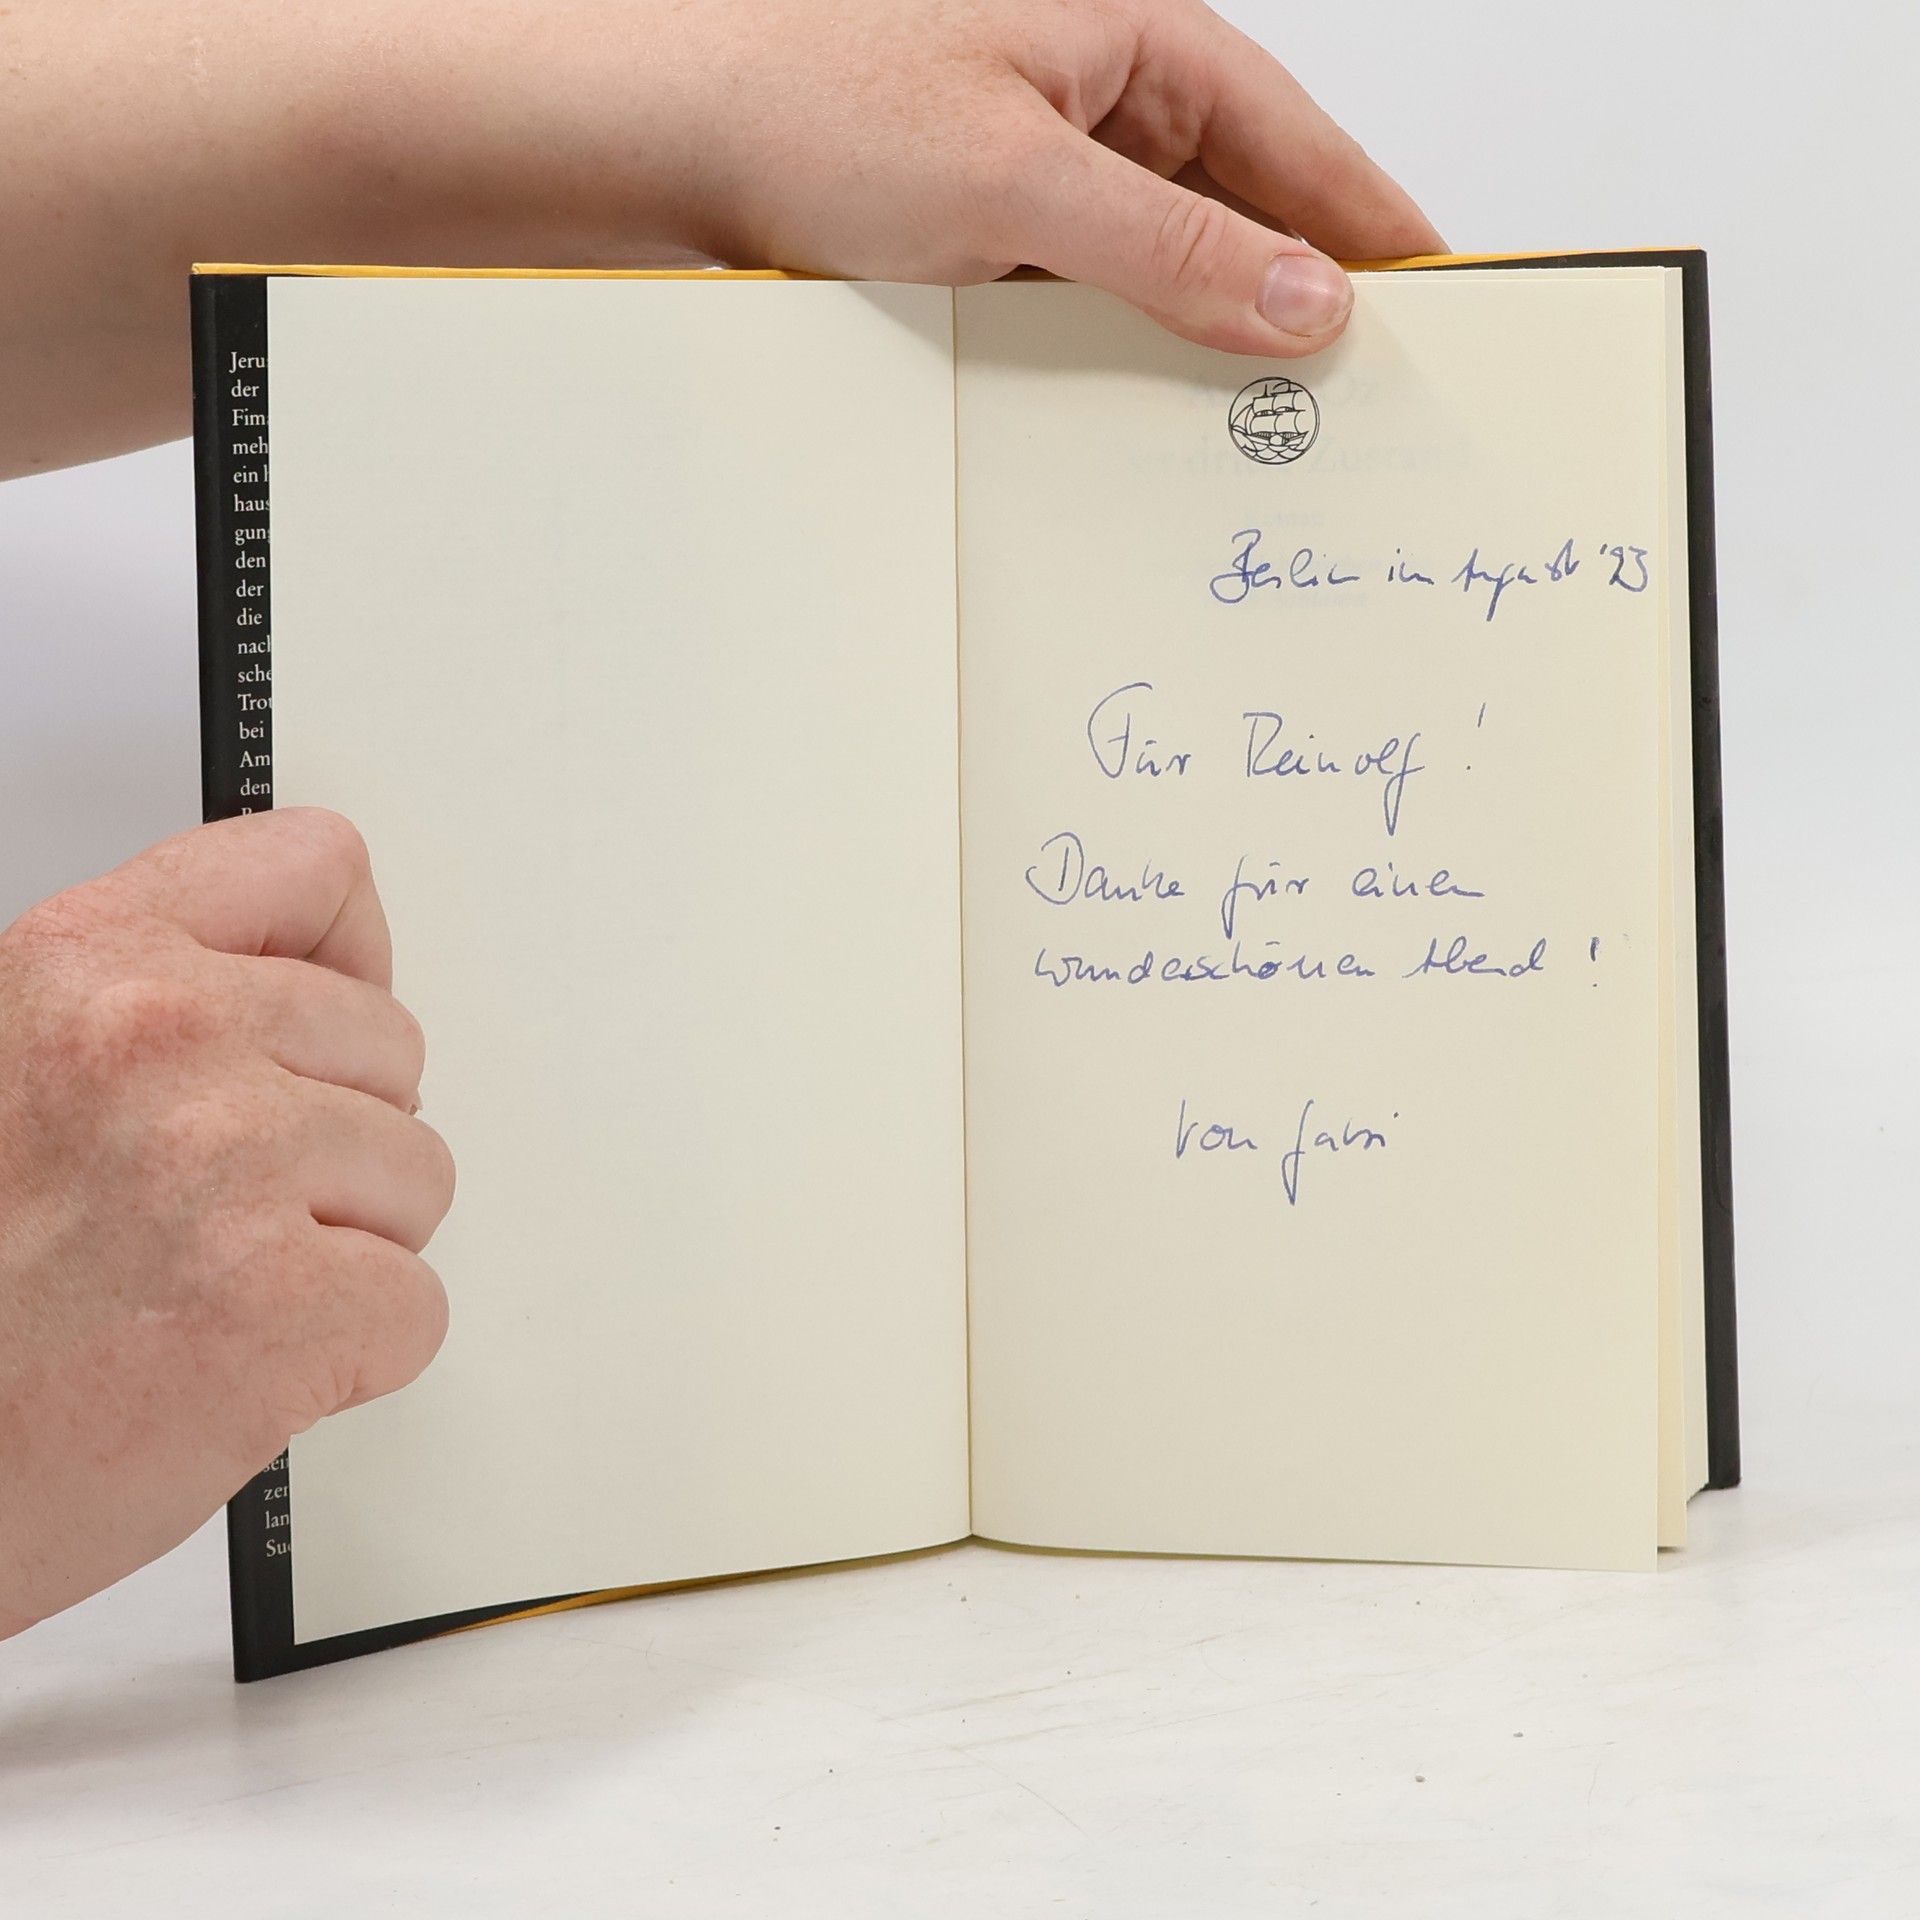 Jeru
der
Fim
meh
ein h
haus
gun
den
der
die
nach
sche
Trot
bei
Am
den
sein
zer
lan
Suc
Berlin im August '93
Für Reinolf!
Danke für einen
wunderschönen Abend!
Von Gabi